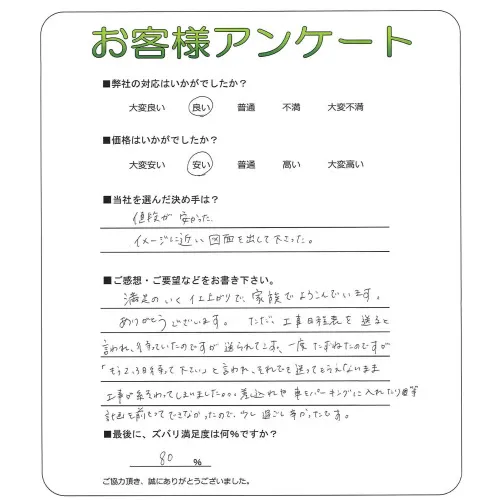 お客様アンケート
■弊社の対応はいかがでしたか？
大変良い 良い 普通 不満 大変不満
■価格はいかがでしたか？
大変安い 安い 普通 高い 大変高い
■当社を選んだ決め手は？
値段が安かった。
イメージに近い図面を出して下さった。
■ご感想・ご要望などをお書き下さい。
満足のいく仕上がりで、家族でよろこんでいます。
ありがとうございます。ただ、工事日程表を送ると
言われ、待っていたのですが送られてこず、一度たずねたのですが
「もう2、3日待って下さい」と言われ、それでも送ってもらえないまま
工事が終わってしまいました。。。差込れや車をパーキングに入れたり等
計画を前もってできなかったので、少し過ごし辛かったです。
■最後に、ズバリ満足度は何%ですか？
80 %
ご協力頂き、誠にありがとうございました。